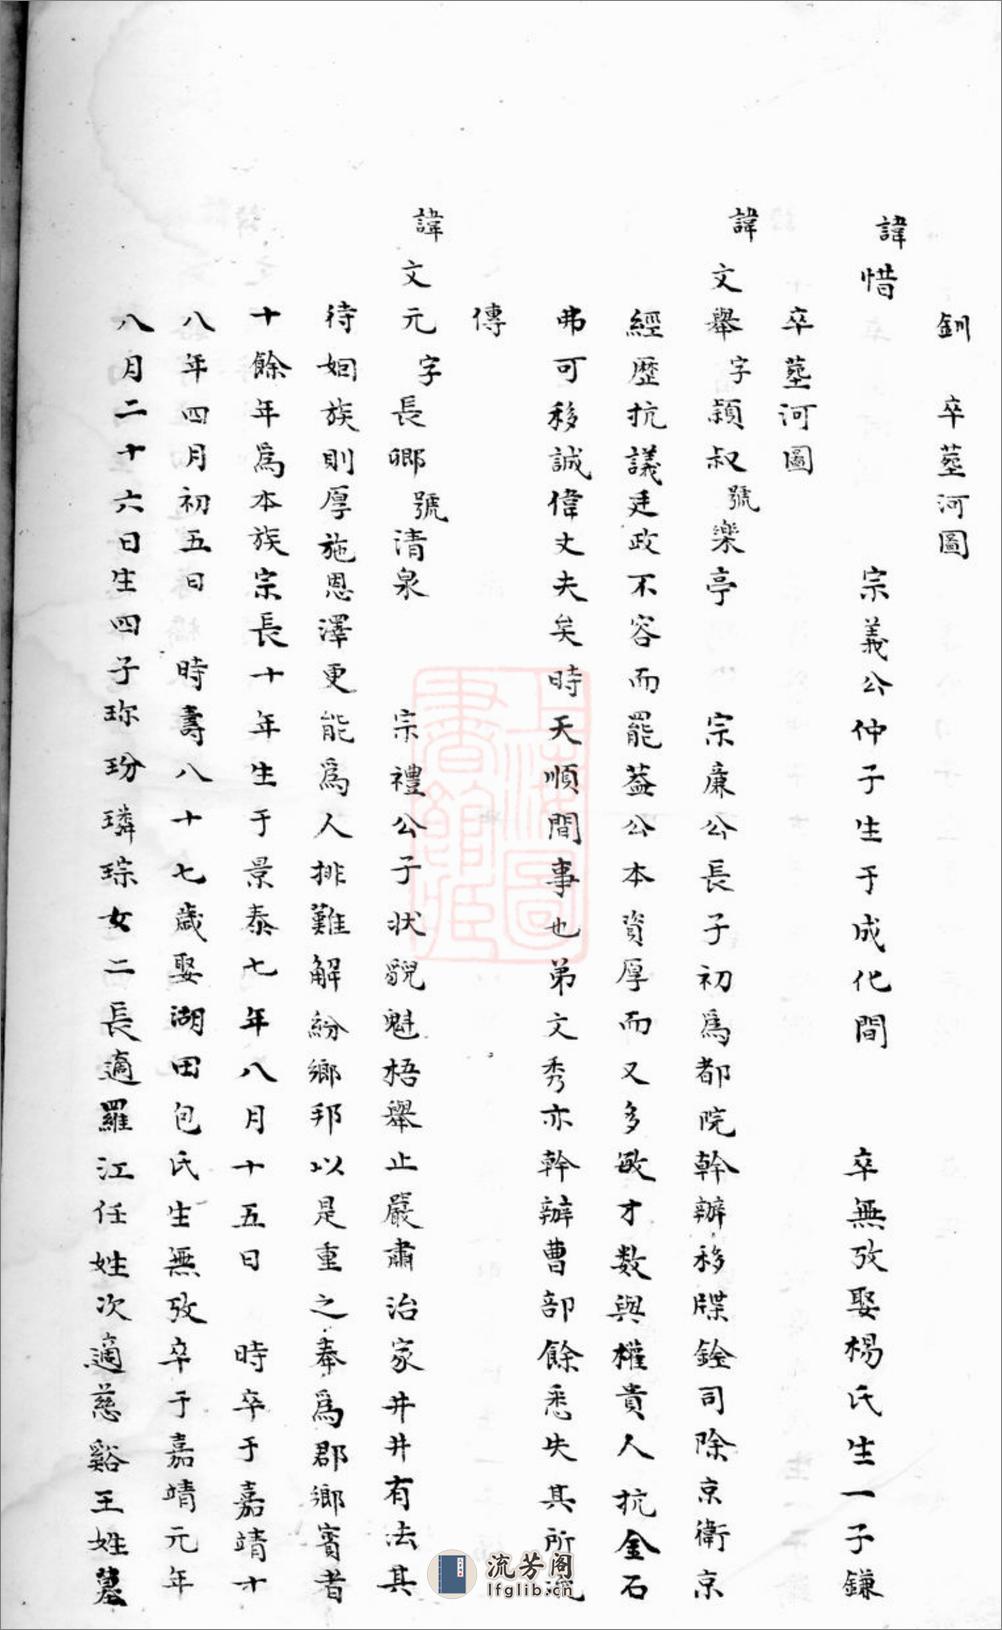 釧　卒塟河圖
諱惜　宗義公仲子生于成化間　卒無攷娶楊氏生一子鎌
卒塟河圖
諱文舉字穎叔號樂亭　宗廉公長子初爲都院幹辦移牒銓司除京衛京
經歷抗議廷政不容而罷葢公本資厚而又多敏才数與權貴人抗金石
弗可移誠偉丈夫矣時天順間事也弟文秀亦幹辦曹部餘悉失其所流
傳
諱文元字長卿號清泉　宗禮公子状貌魁梧舉止嚴肅治家井井有法其
待姻族則厚施恩澤更能爲人排難解紛鄉邦以是重之奉爲郡鄉賓者
十餘年爲本族宗長十年生于景泰七年八月十五日　時卒于嘉靖才
八年四月初五日　時壽八十七歲娶湖田包氏生無攷卒于嘉靖元年
八月二十六日生四子珎玢璘琮女二長適羅江任姓次適慈谿王姓墓
上海圖書館藏
流芳阁
lfglib.cn